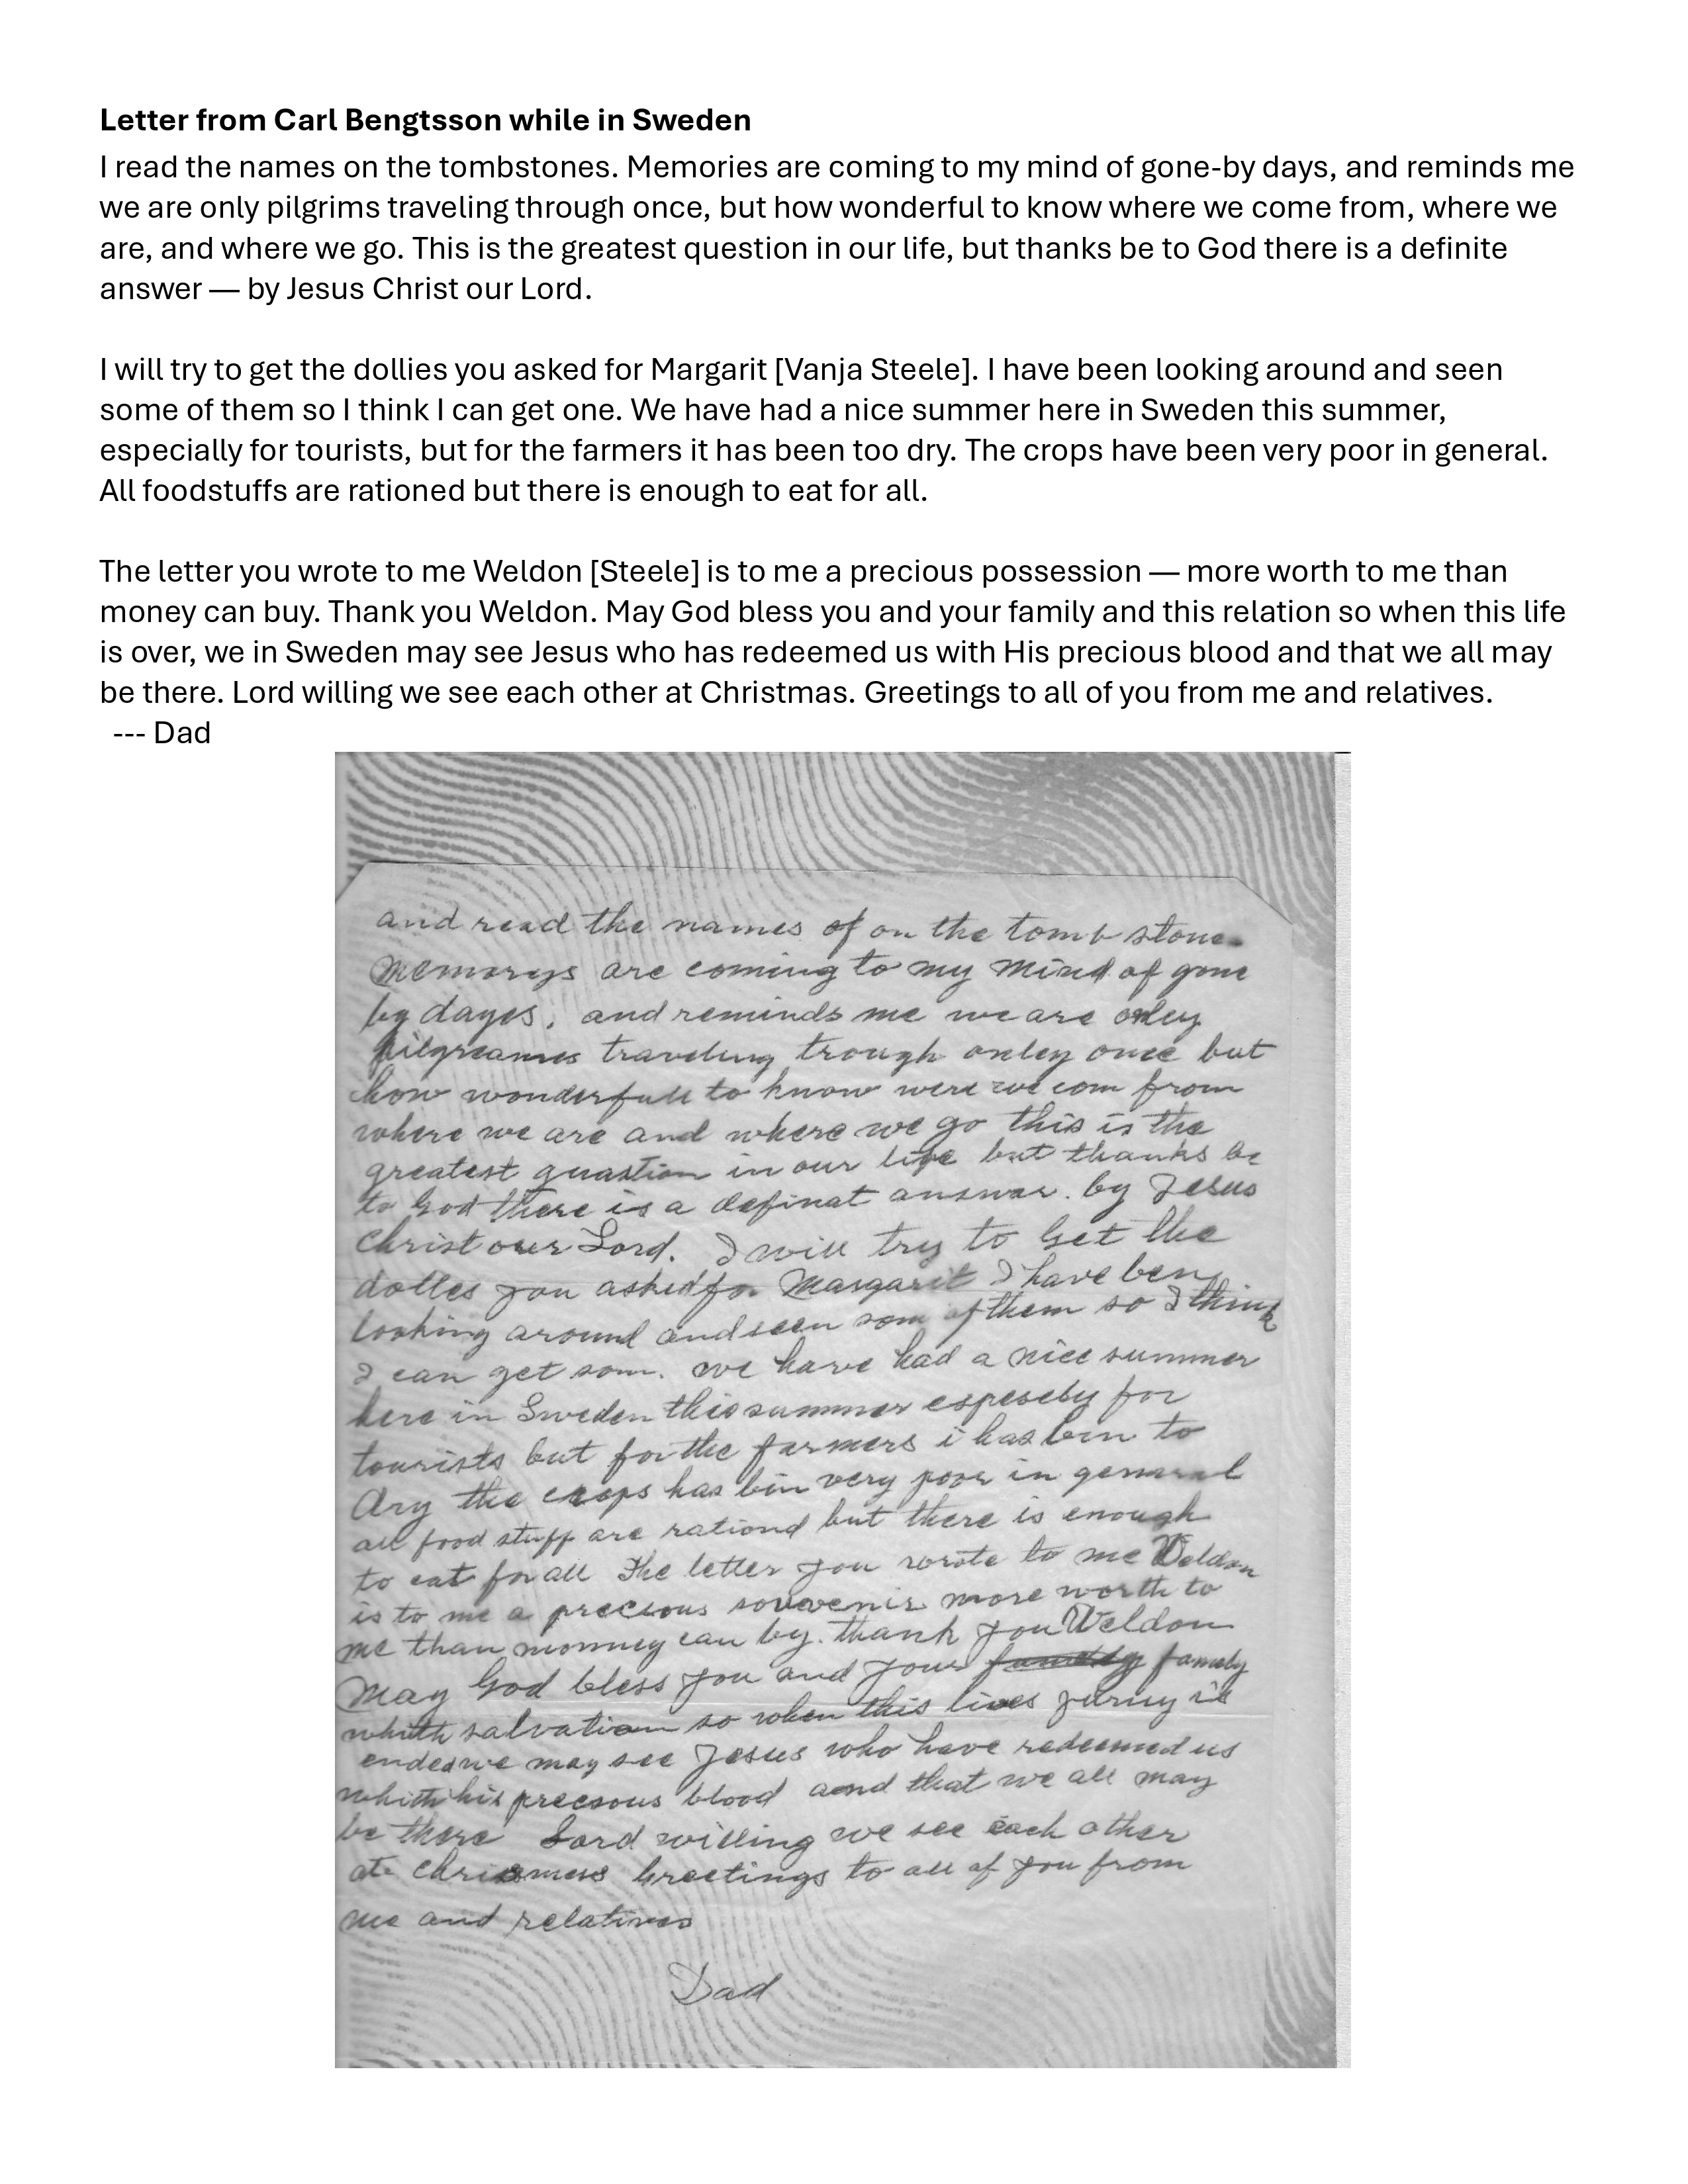 Letter from Carl Bengtsson while in Sweden
I read the names on the tombstones. Memories are coming to my mind of gone-by days, and reminds me
we are only pilgrims traveling through once, but how wonderful to know where we come from, where we
are, and where we go. This is the greatest question in our life, but thanks be to God there is a definite
answer — by Jesus Christ our Lord.
I will try to get the dollies you asked for Margarit [Vanja Steele]. I have been looking around and seen
some of them so I think I can get one. We have had a nice summer here in Sweden this summer,
especially for tourists, but for the farmers it has been too dry. The crops have been very poor in general.
All foodstuffs are rationed but there is enough to eat for all.
The letter you wrote to me Weldon [Steele] is to me a precious possession — more worth to me than
money can buy. Thank you Weldon. May God bless you and your family and this relation so when this life
is over, we in Sweden may see Jesus who has redeemed us with His precious blood and that we all may
be there. Lord willing we see each other at Christmas. Greetings to all of you from me and relatives.
--- Dad
and read the names of on the tomb stone
Memorys are coming to my mind of gone
by dayes, and reminds me we are onley
pilgreames traveling trough onley once but
how wonderfull to know were we com from
where we are and where we go this is the
greatest quastion in our life but thanks be
to God there is a definat answar. by Jesus
Christ ouer Lord. I will try to Get the
dolles you asked for Margarit I have ben
looking around and seen som of them so I think
I can get som. we have had a nice summer
here in Sweden this summer espesely for
tourists but for the farmers i has ben to
dry the crops has bin very poor in general
all food stuff are rationd but there is enough
to eat for all The letter you wrote to me Weldon
is to me a precious souvenir more worth to
me than monney can by. thank you Weldon
May God bless you and your family family
whith salvation so when this lives jurney is
ended we may see Jesus who have redeemed us
whith his precsous blood aond that we all may
be there Lord willing we see each other
ate Chrismes Greetings to all of you from
me and relatives
Dad